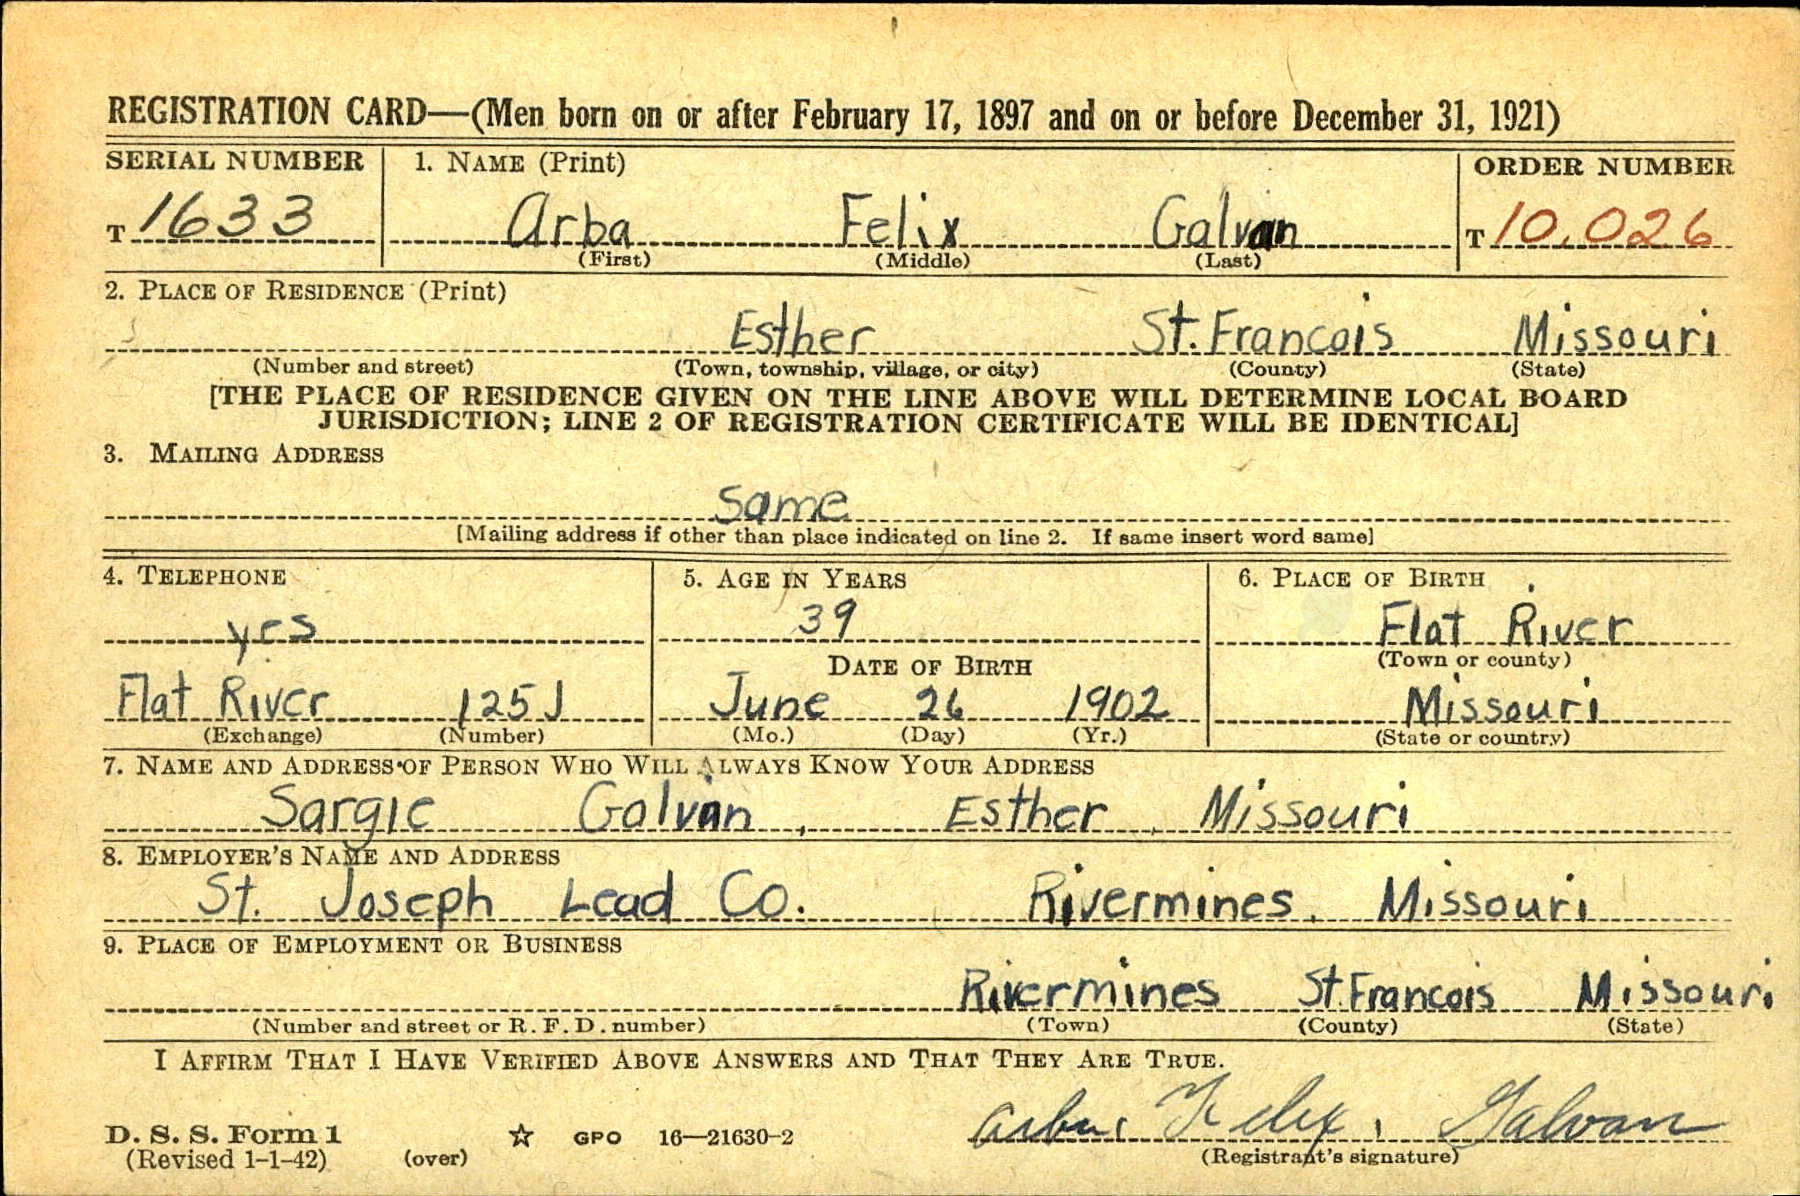 REGISTRATION CARD—(Men born on or after February 17, 1897 and on or before December 31, 1921)
SERIAL NUMBER 1. NAME (Print) ORDER NUMBER
T 1633 Arba Felix Galvan T 10,026
(First) (Middle) (Last)
2. PLACE OF RESIDENCE (Print)
Esther St. Francois Missouri
(Number and street) (Town, township, village, or city) (County) (State)
[THE PLACE OF RESIDENCE GIVEN ON THE LINE ABOVE WILL DETERMINE LOCAL BOARD
JURISDICTION; LINE 2 OF REGISTRATION CERTIFICATE WILL BE IDENTICAL]
3. MAILING ADDRESS
Same
[Mailing address if other than place indicated on line 2. If same insert word same]
4. TELEPHONE 5. AGE IN YEARS 6. PLACE OF BIRTH
yes 39 Flat River
DATE OF BIRTH (Town or county)
Flat River 125J June 26 1902 Missouri
(Exchange) (Number) (Mo.) (Day) (Yr.) (State or country)
7. NAME AND ADDRESS OF PERSON WHO WILL ALWAYS KNOW YOUR ADDRESS
Sargie Galvan, Esther, Missouri
8. EMPLOYER'S NAME AND ADDRESS
St. Joseph Lead Co. Rivermines, Missouri
9. PLACE OF EMPLOYMENT OR BUSINESS
Rivermines St. Francois Missouri
(Number and street or R. F. D. number) (Town) (County) (State)
I AFFIRM THAT I HAVE VERIFIED ABOVE ANSWERS AND THAT THEY ARE TRUE.
D. S. S. Form 1 ☆ GPO 16—21630-2 Arba Felix Galvan
(Revised 1-1-42) (over) (Registrant's signature)